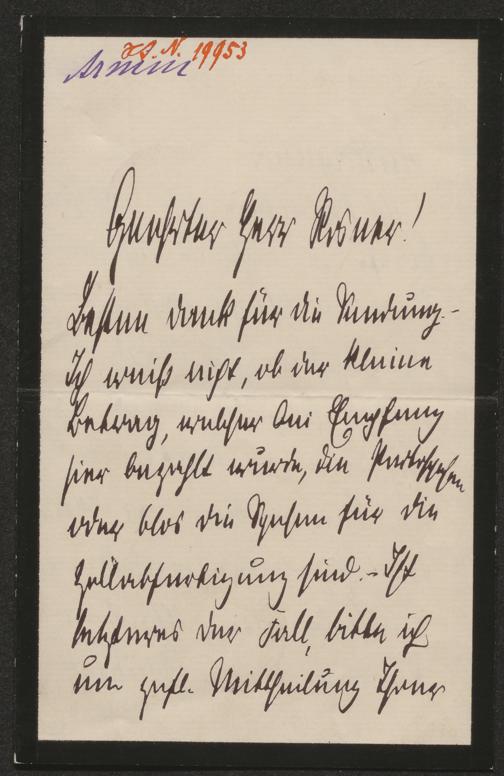 I. N. 19953
Armin
Geehrter Herr Rosner!
Besten Dank für die Sendung. –
Ich weiß nicht, ob der kleine
Betrag, welcher bei Empfang
hier bezahlt wurde, die Portospesen
oder blos die Spesen für die
Zollabfertigung sind. – Ist
letzteres der Fall, bitte ich
um gefl. Mittheilung Ihrer